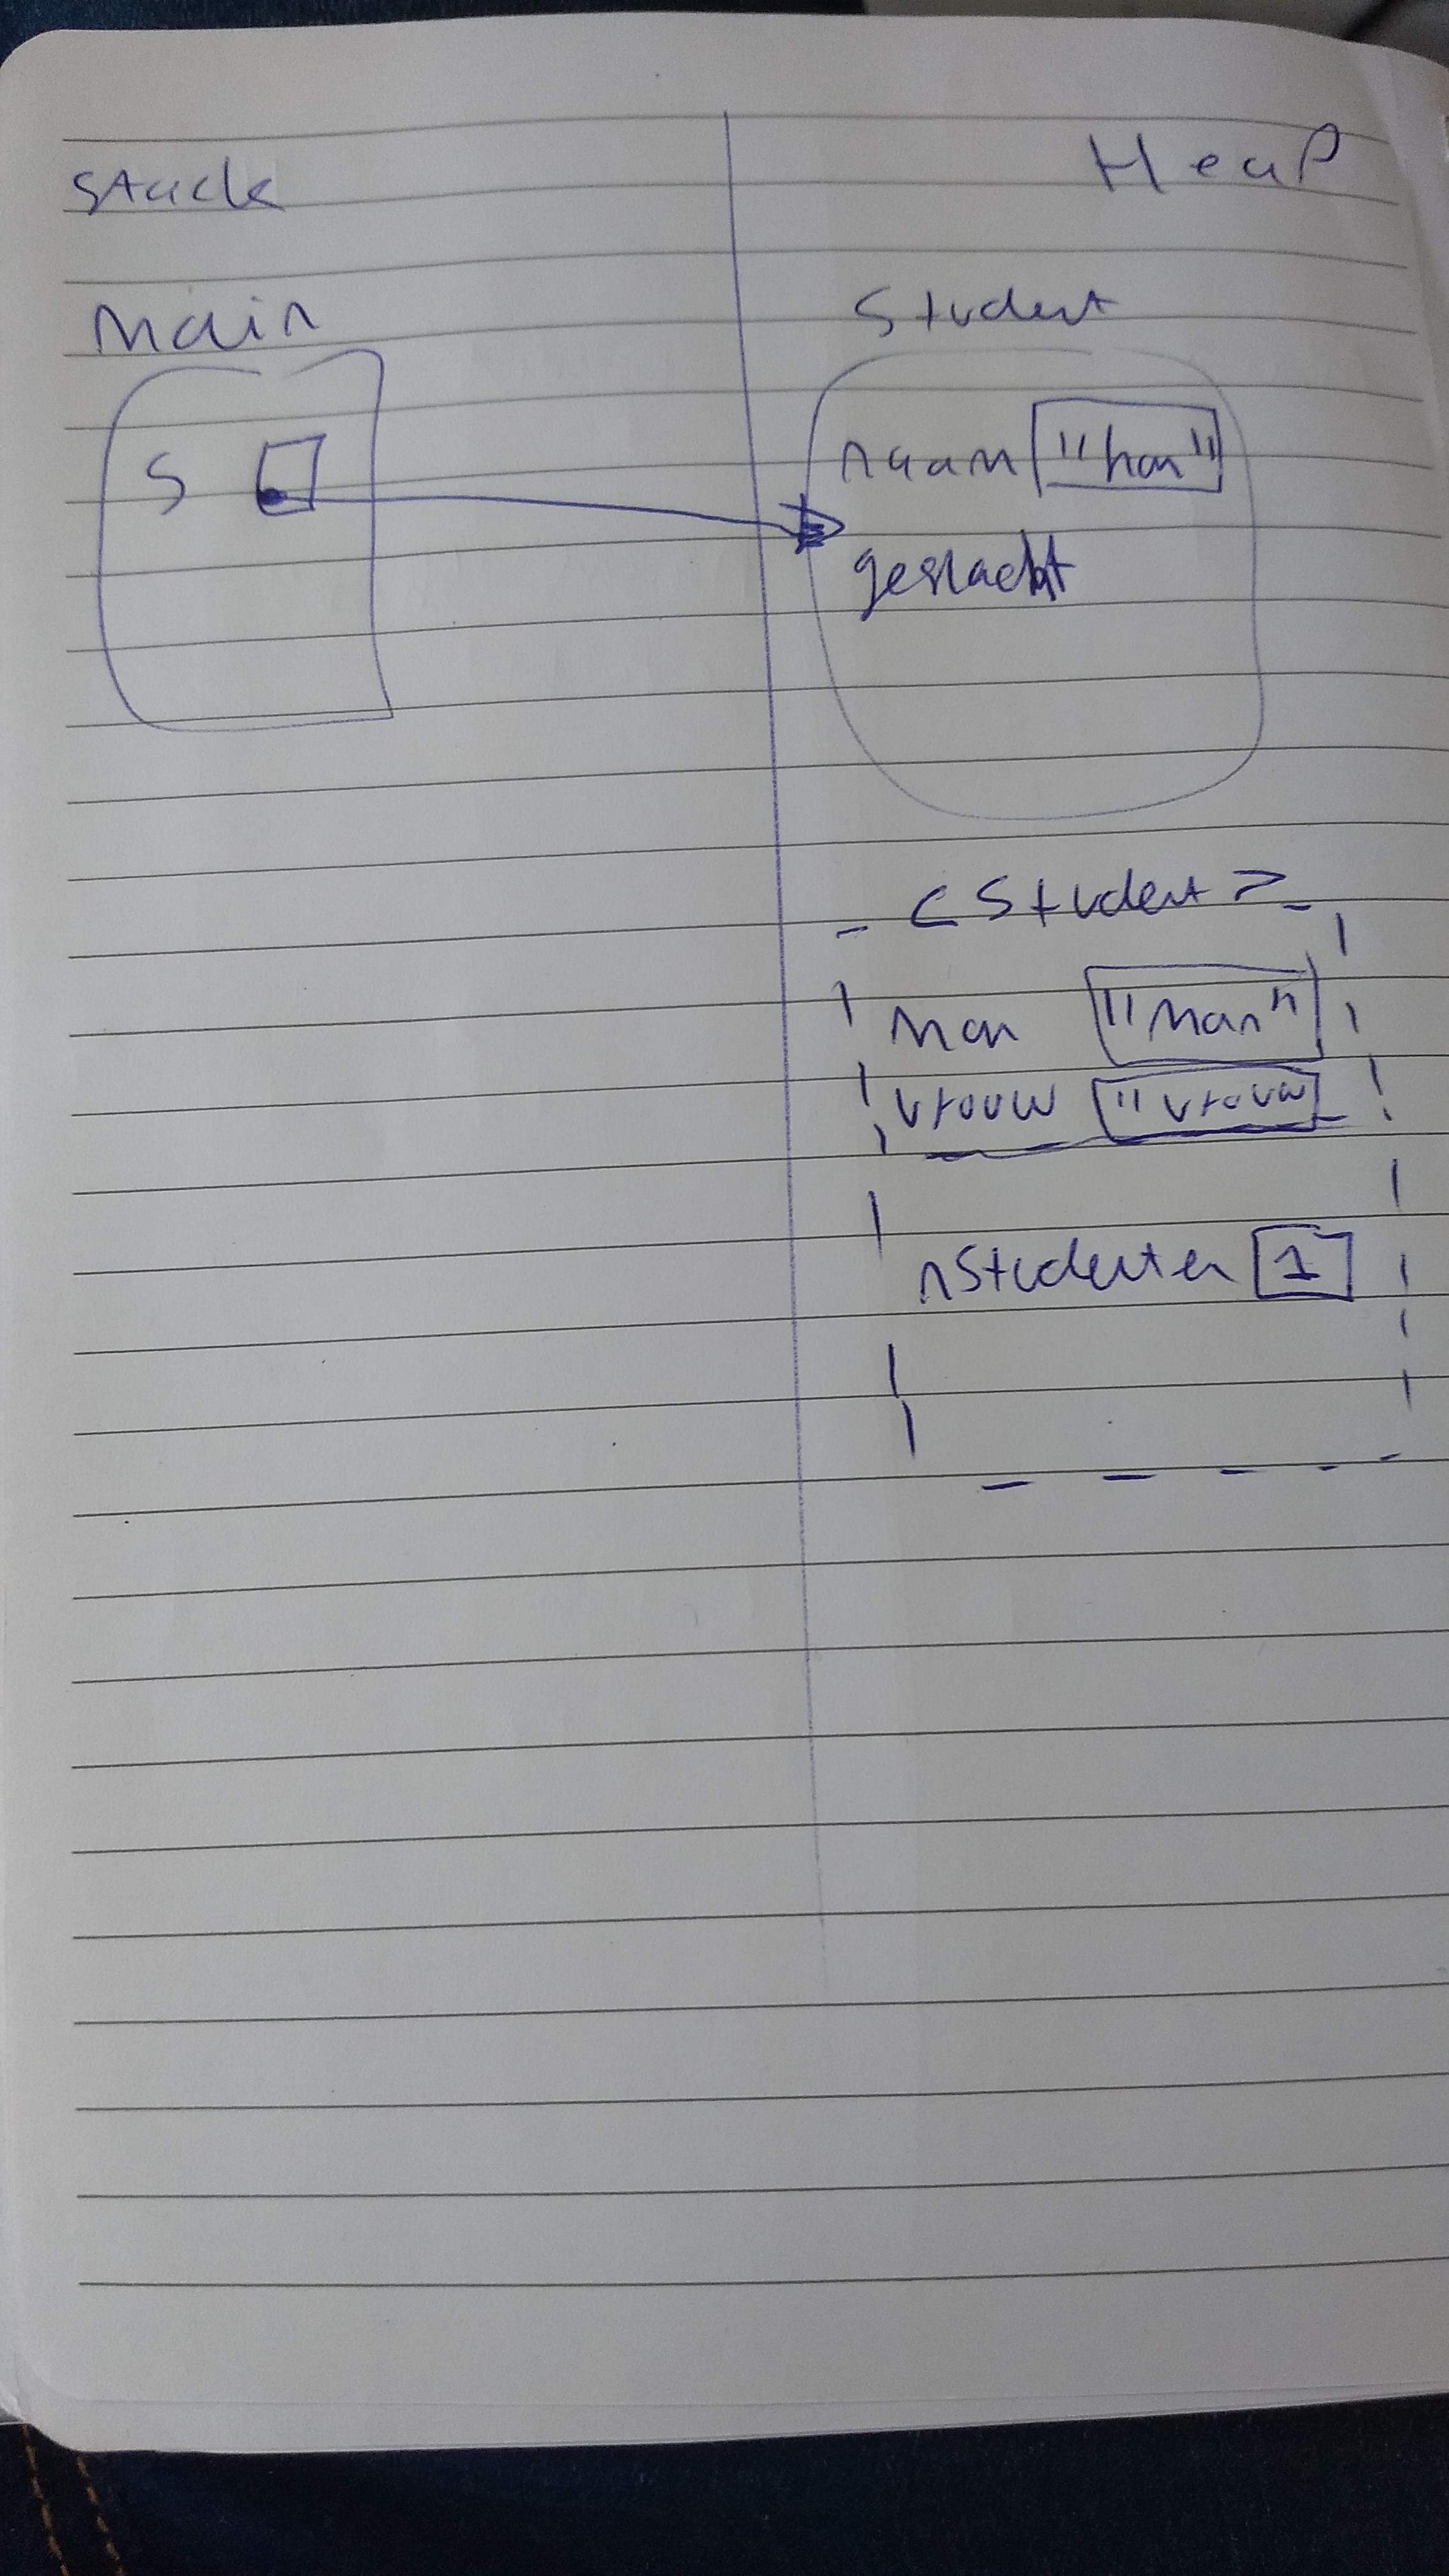 Stack
Heap
Main
Student
S
naam "han"
geslacht
<Student>
Man "Man"
Vrouw "Vrouw
nStudenten 1